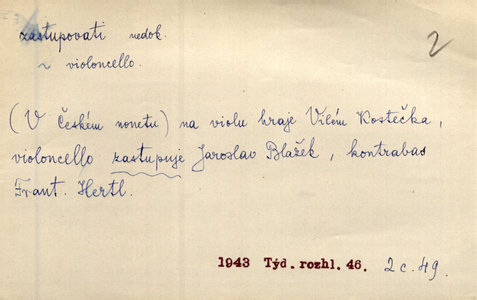 zastupovati nedok.
2
~ violoncello.
(V Českém nonetu) na violu hraje Vilém Kostečka,
violoncello zastupuje Jaroslav Blažek, kontrabas
Frant. Hertl.
1943 Týd. rozhl. 46. 2 c. 49.